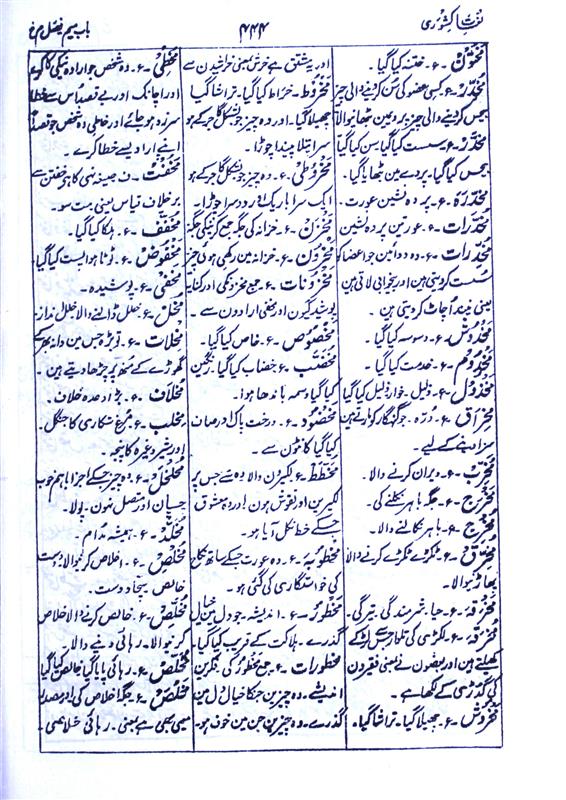 لغات کشوری
۴۴۴
باب میم فصل خ
مختون ۔ ع ۔ ختنہ کیا گیا ۔
مخدر ۔ ع ۔ کسی عضو کی سن کر دینے والی چیز
بیحس کر دینے والی چیز پردہ میں بٹھانے والا
مخدر ۔ ع ۔ سست کیا گیا سن کیا گیا
بیحس کیا گیا ۔ پردے میں بٹھایا گیا ۔
مخدرہ ۔ ع ۔ پردہ نشین عورت ۔
مخدرات ۔ ع ۔ عورتیں پردہ نشین
مخدرات ۔ ع ۔ وہ دوائیں جو اعضا کو
سست کر دیتی ہیں اور بیخوابی لاتی ہیں
یعنی نیند اُچاٹ کر دیتی ہیں ۔
مخدوش ۔ ع ۔ وسوسہ کیا گیا ۔
مخدوم ۔ ع ۔ خدمت کیا گیا ۔
مخذول ۔ ع ۔ ذلیل ۔ خوار ذلیل کیا گیا
مخراق ۔ ع ۔ دُرّہ ۔ جو گنہگار کو مارتے ہیں
سزا دینے کے لیے ۔
مخرب ۔ ع ۔ ویران کرنے والا ۔
مخرج ۔ ع ۔ جگہ باہر نکلنے کی ۔
مخرج ۔ ع ۔ باہر نکالنے والا ۔
مخرق ۔ ع ۔ ٹکڑے ٹکڑے کرنے والا
پھاڑنے والا ۔
مخرقہ ۔ ع ۔ حیا ۔ شرمندگی ۔ تیرگی ۔
مخرقہ ۔ ع ۔ لکڑی کی تلوار جس سے لڑکے
کھیلتے ہیں اور بعضوں نے بمعنی فقیروں
کی گدڑی کے لکھا ہے ۔
مخروش ۔ ع ۔ چھیلا گیا ۔ تراشا گیا ۔
اور یہ مشتق ہے خرش بمعنی خراشیدن سے
مخروط ۔ خراط کیا گیا ۔ تراشا گیا
چھیلا گیا ۔ اور وہ چیز جو بشکل گاجر کے ہو
سرا پتلا پیندا چوڑا ۔
مخروطی ۔ ع ۔ وہ چیز جو بشکل گاجر کے ہو
ایک سرا باریک اور دوسرا چوڑا ۔
مخزن ۔ ع ۔ خزانہ کی جگہ جمع کرنیکی جگہ
مخزون ۔ ع ۔ خزانہ میں رکھی ہوئی چیز
مخزونات ۔ ع ۔ جمع مخزون کی اور کنایہ
پوشیدگیوں اور مخفی ارادوں سے ۔
مخصوص ۔ ع ۔ خاص کیا گیا ۔
مخضب ۔ ع ۔ خضاب کیا گیا ۔ رنگین
کیا گیا وسمہ باندھا ہوا ۔
مخضود ۔ ع ۔ درخت پاک اور صاف
کیا گیا کانٹوں سے ۔
مخطط ۔ ع ۔ لکیروں والا وہ شے جس پر
لکیریں اور نقوش ہوں اور وہ معشوق
جسکے خط نکل آیا ہو ۔
مخطوبہ ۔ ع ۔ وہ عورت جسکے ساتھ نکاح
کی خواستگاری کی گئی ہو ۔
مخطور ۔ ع ۔ اندیشہ ۔ جو دل میں خیال
گذرے ۔ ہلاکت کے قریب کیا گیا ۔
مخطورات ۔ ع ۔ جمع مخطور کی ۔ فکریں
اندیشے ۔ وہ چیزیں جنکا خیال دل میں
گذرے ۔ وہ چیزیں جن میں خوف ہو ۔
مخطی ۔ ع ۔ وہ شخص جو ارادہ نیکی کا کرے
اور اچانک اور بے قصد اُس سے خطا
سرزد ہو جائے اور خاطی وہ شخص جو قصداً
اپنے ارادے سے خطا کرے ۔
مخفت ۔ ف ۔ صیغہ نہی کا ہے خفتن سے
برخلاف قیاس یعنی مت سو ۔
مخفف ۔ ع ۔ ہلکا کیا گیا ۔
مخفوض ۔ ع ۔ دبتا ہوا پست کیا گیا
مخفی ۔ ع ۔ پوشیدہ ۔
مخل ۔ ع ۔ خلل ڈالنے والا خلل انداز ۔
مخلات ۔ ع ۔ توبڑہ جس میں دانہ بھر کے
گھوڑے کے منہ پر چڑھا دیتے ہیں ۔
مخلاف ۔ ع ۔ بڑا وعدہ خلاف ۔
مخلب ۔ ع ۔ مرغ شکاری کا چنگل ۔
اور شیر وغیرہ کا پنجہ ۔
مخلخل ۔ ع ۔ وہ چیز جسکے اجزا باہم خوب
چسپاں اور متصل نہوں ۔ پولا ۔
مخلد ۔ ع ۔ ہمیشہ مدام ۔
مخلص ۔ ع ۔ اخلاص کرنیوالا دوست
خالص سچا دوست ۔
مخلص ۔ ع ۔ خالص کرنے والا خلاص
کرنیوالا ۔ رہائی دینے والا ۔
مخلص ۔ ع ۔ رہائی پایا گیا خالص کیا گیا
مخلص ۔ ع ۔ جگہ اخلاص کی اور مصدر
میمی بھی ہے بمعنی ۔ رہائی خلاصی ۔